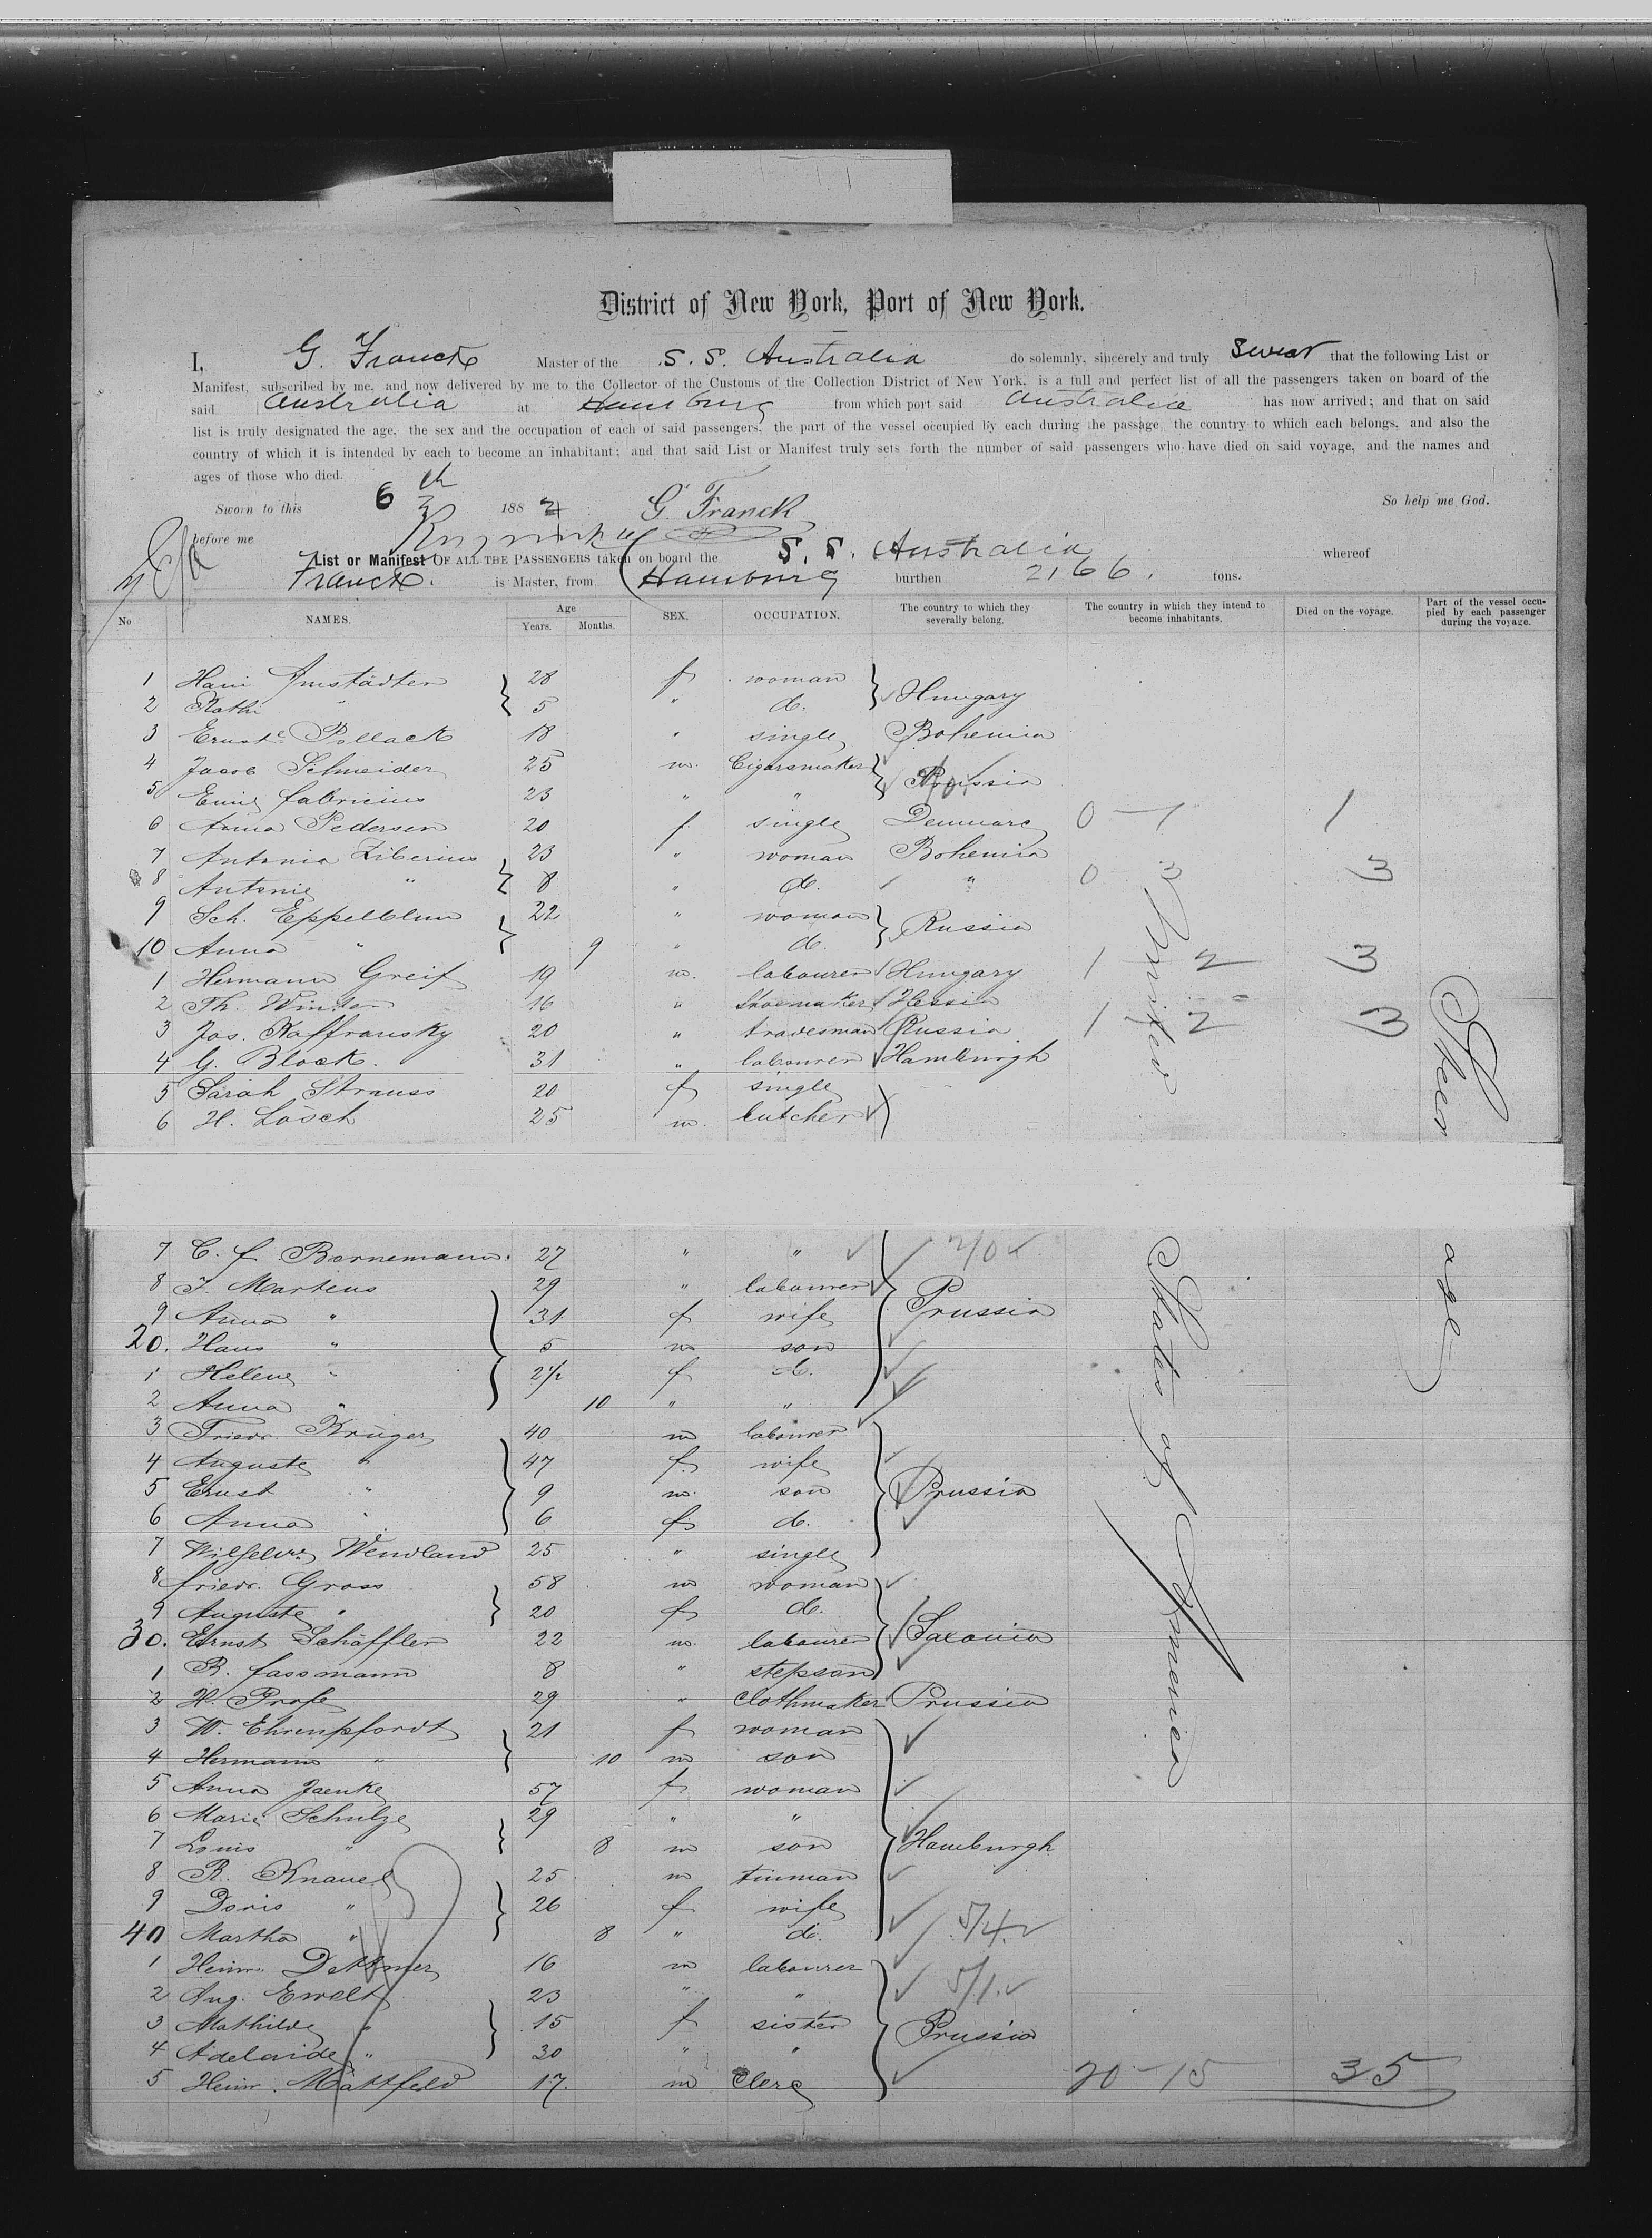 District of New York, Port of New York.
I, G. Franck Master of the S. S. Australia do solemnly, sincerely and truly swear that the following List or
Manifest, subscribed by me, and now delivered by me to the Collector of the Customs of the Collection District of New York, is a full and perfect list of all the passengers taken on board of the
said Australia at Hamburg from which port said Australia has now arrived; and that on said
list is truly designated the age, the sex and the occupation of each of said passengers, the part of the vessel occupied by each during the passage, the country to which each belongs, and also the
country of which it is intended by each to become an inhabitant; and that said List or Manifest truly sets forth the number of said passengers who have died on said voyage, and the names and
ages of those who died.
Sworn to this 6th 188 G. Franck So help me God.
before me
List or Manifest OF ALL THE PASSENGERS taken on board the S. S. Australia whereof
Franck. is Master, from Hamburg burthen 2166. tons.
No NAMES. Age Years. Months. SEX. OCCUPATION. The country to which they severally belong. The country in which they intend to become inhabitants. Died on the voyage. Part of the vessel occupied by each passenger during the voyage.
1 Hani 28 f woman
2 Kathi " 5 " d. Hungary
3 Pollack 18 " single Bohemia
4 Jacob Schneider 25 m. Cigarsmaker
5 Emil fabricius 23 " " Prussia
6 Anna Pedersen 20 f. single Denmarc 0 - 1 1
7 Antonia Ziberius 23 " woman Bohemia
8 Antonie " 8 " d. " 0 3 3
9 Sch. Eppelblum 22 " woman
10 Anna " 9 " d. Russia
1 Hermann Greif 19 m. labourer Hungary 1 2 3
2 Th. Winter 16 " Shoemaker Hessia
3 Jos. Kaffransky 20 " tradesman Russia 1 2 3
4 G. Block. 31 " labourer Hamburgh
5 Sarah Strauss 20 f single
6 H. Lösch 25 m. butcher
7 C. f Bornemann. 27 " "
8 J. Martens 29 " labourer
9 Anna " 31 f wife Prussia
20. Hans " 5 m son
1 Helene " 2½ f d.
2 Anna " 10 " "
3 Friedr. Krüger 40 m labourer
4 Auguste " 47 f. wife
5 Ernst " 9 m. son Prussia
6 Anna " 6 f d.
7 Wendland 25 " single
8 friedr. Gross 58 m woman
9 Auguste " 20 f d.
30. Ernst Schäffler 22 m. labourer Saxonia
1 R. fassmann 8 " stepson
2 H. Profe 29 " Clothmaker Prussia
3 W. Ehrenpfordt 21 f woman
4 Hermann " 10 m son
5 Anna Jaenke 57 f woman
6 Marie Schulze 29 " "
7 Louis " 8 m son Hamburgh
8 R. Knauel 25 m tinman
9 Doris " 26 f wife
40 Martha " 8 " d. 5/4
1 Heinr. Dettmer 16 m labourer
2 Aug. Ewelt 23 " " 5/1
3 Mathilde " 15 f sister Prussia
4 Adelaide " 30 " "
5 Heinr. Mattfeld 17. m Clerc 20 - 15 35
United States of America
Steerage